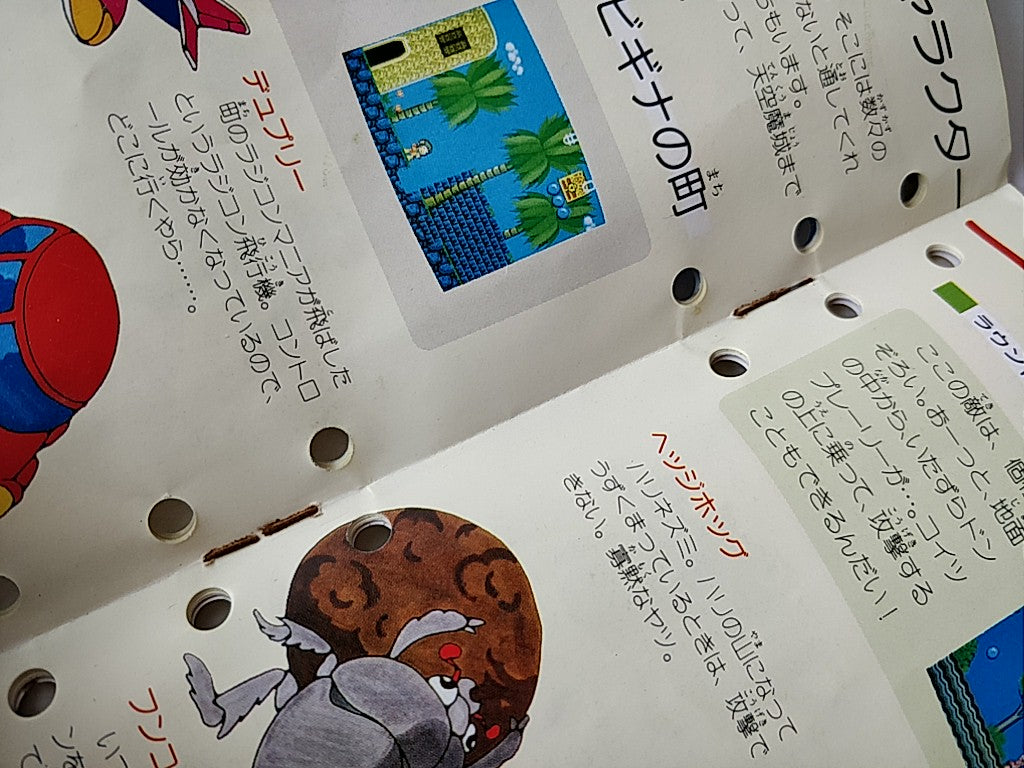 ャラクター
そこには数々の
ないと通してくれ
ちもいます。
って、天空魔城まで
ビギナの町
デュプリー
町のラジコンマニアが飛ばした
というラジコン飛行機。コントロ
ールが効かなくなっているので、
どこに行くやら……。
ラウン
ここの敵は、個
ぞろい。おーっと、地面
の中から、いたずらドン
プレーリーが…。コイツ
の上に乗って、攻撃する
こともできるんだい！
ヘッジホッグ
ハリネズミ。ハリの山になって
うずくまっているときは、攻撃で
きない。寡黙なヤツ。
フンコ